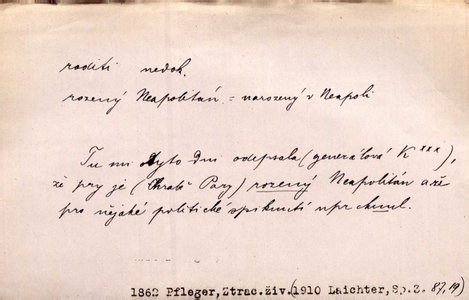 roditi nedok.
rozený Neapolitán. = narozený v Neapoli
Tu mi tyto dni odepsala (generálová K xxx),
že prý je (hrabě Pary) rozený Neapolitán a že
pro nějaké politické spiknutí uprchnul.
1862 Pfleger, Ztrac. živ. (1910 Laichter, Sp. 3. 87, 19)